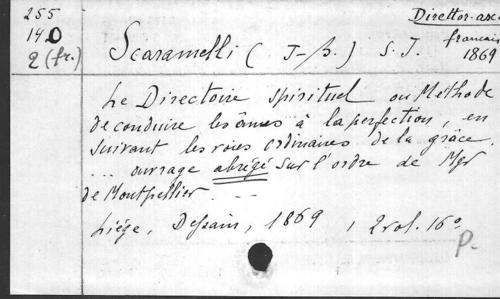 255
140
2 (fr.)
Direttor. asc.
français
1869
Scaramelli ( J-B. ) S. J.
Le Directoire spirituel ou Méthode
de conduire les âmes à la perfection, en
suivant les voies ordinaires de la grâce.
... ouvrage abrégé sur l'ordre de Mgr
de Montpellier.
Liége, Dessain, 1869, 2 vol. 16º
P.